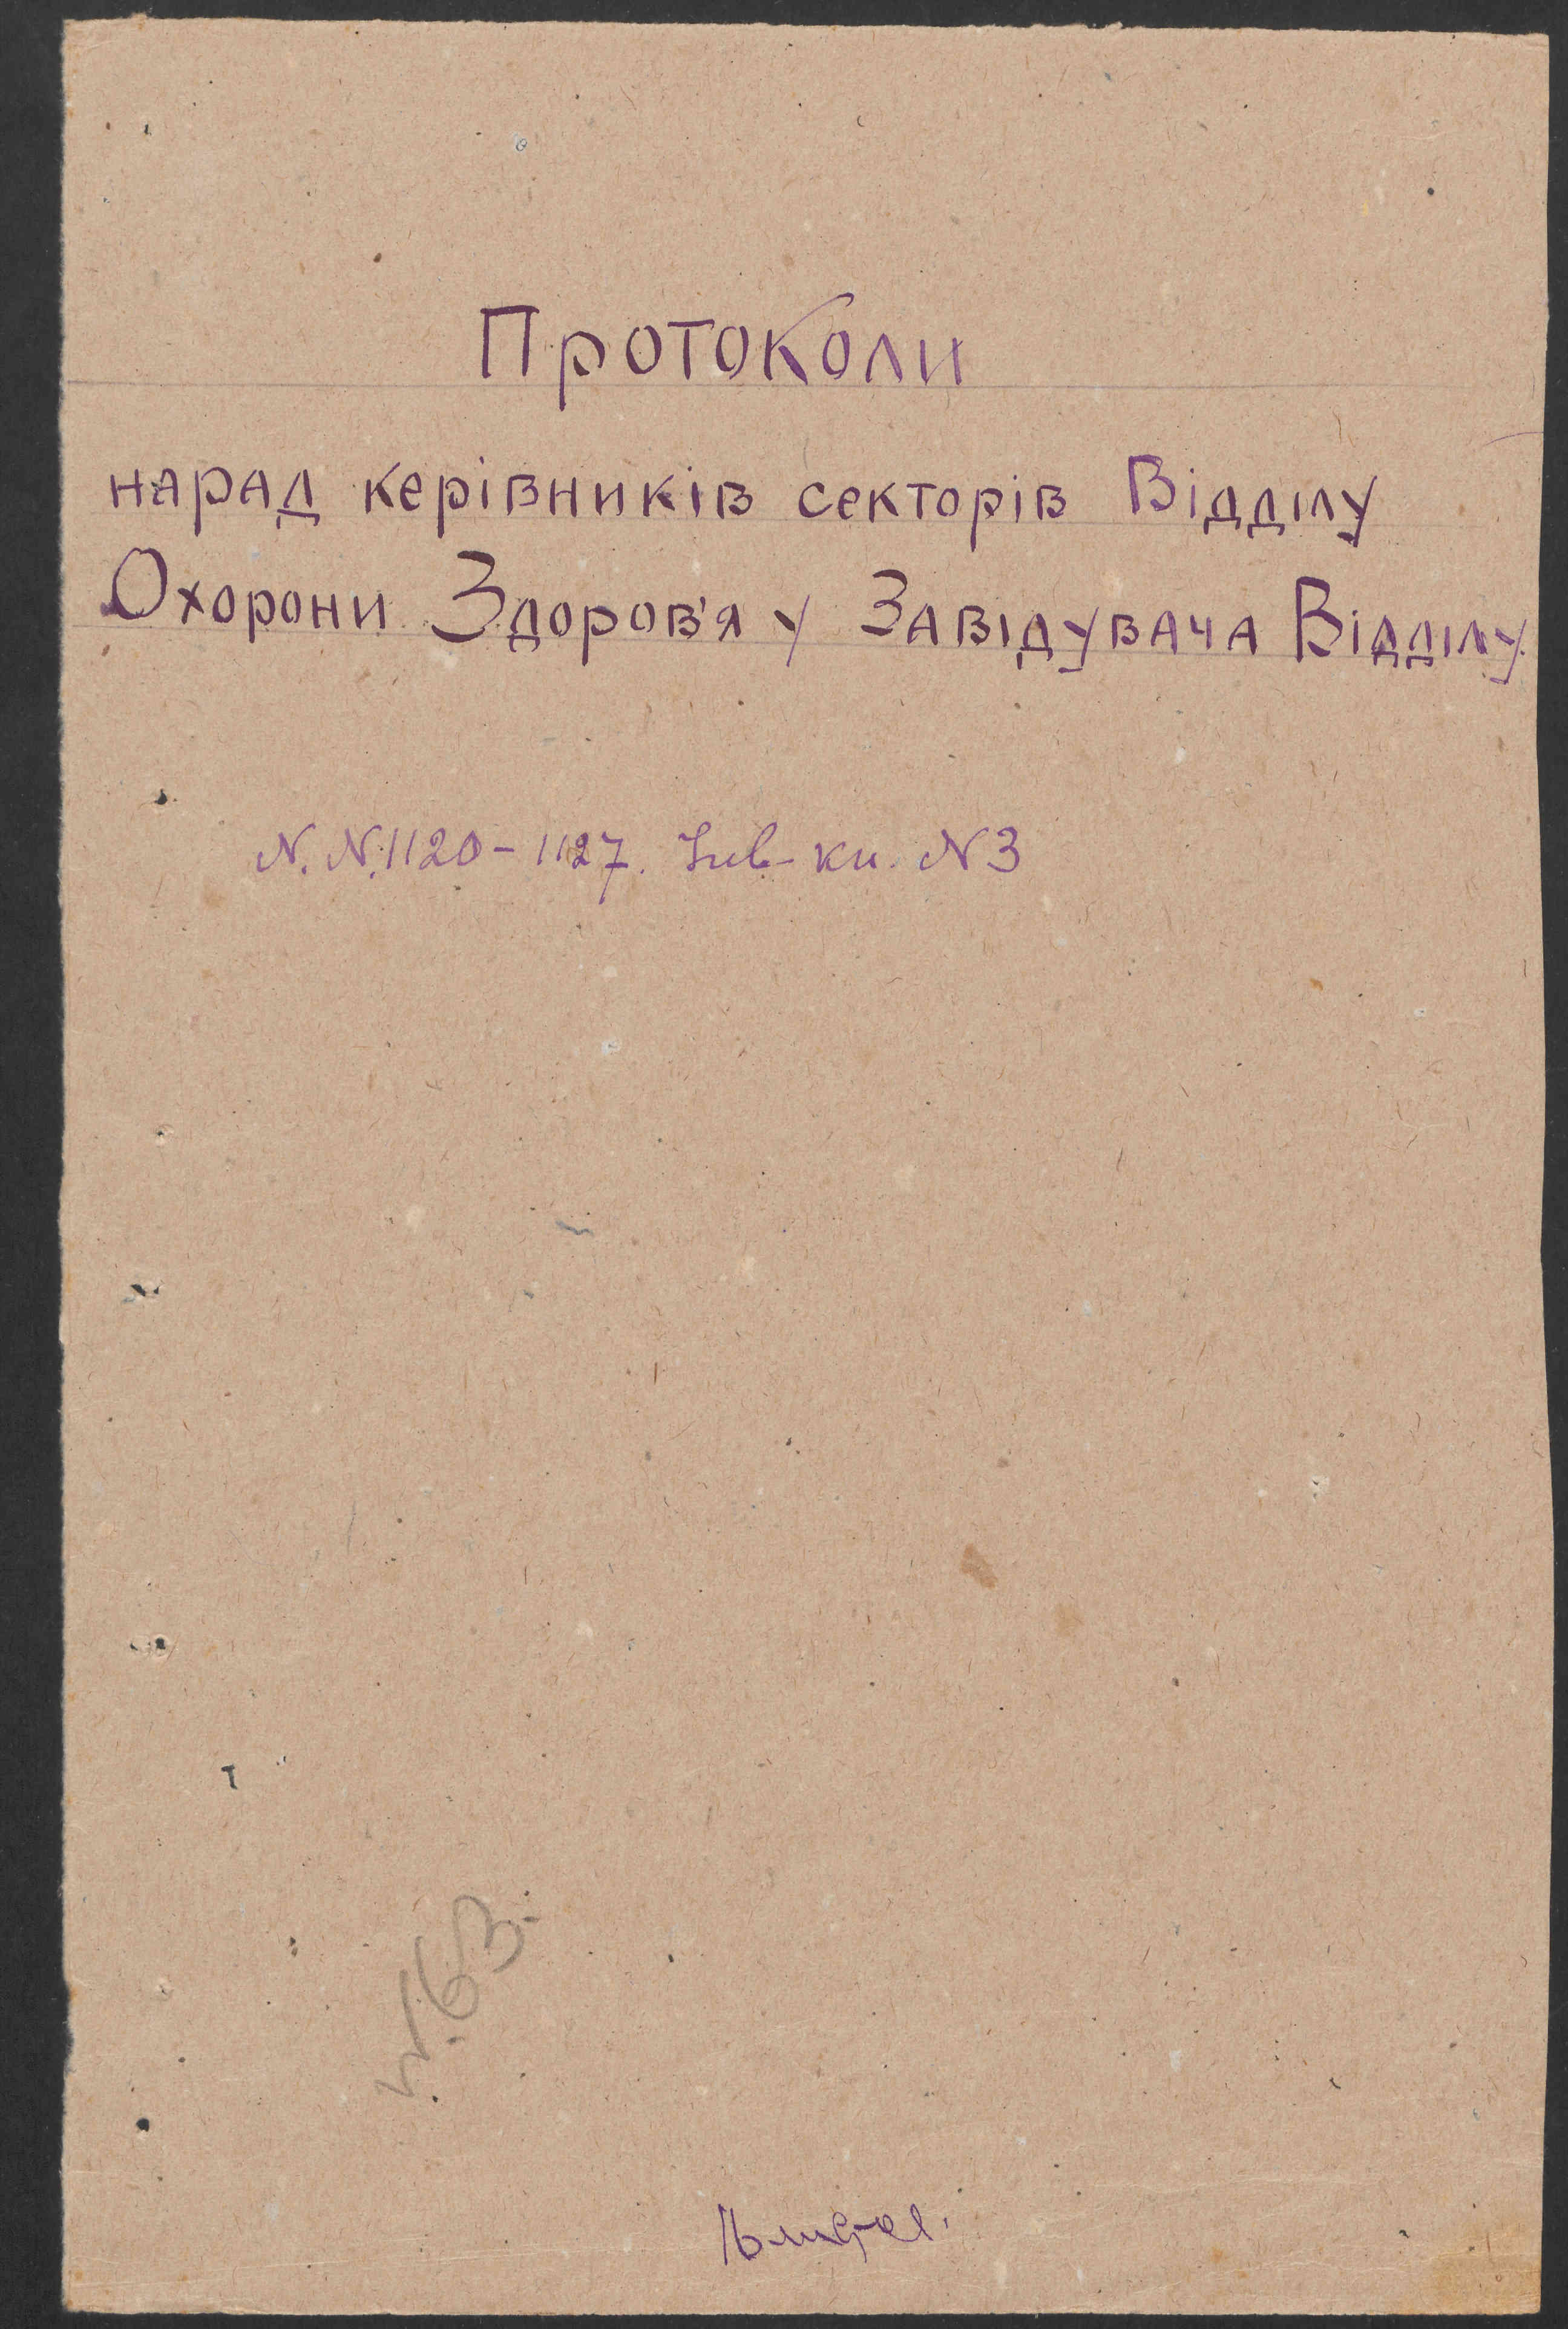 Протоколи
нарад керівників секторів Відділу
Охорони Здоров'я у Завідувача Відділу.
N.N.1120-1127. Інв-кн. N3
63.